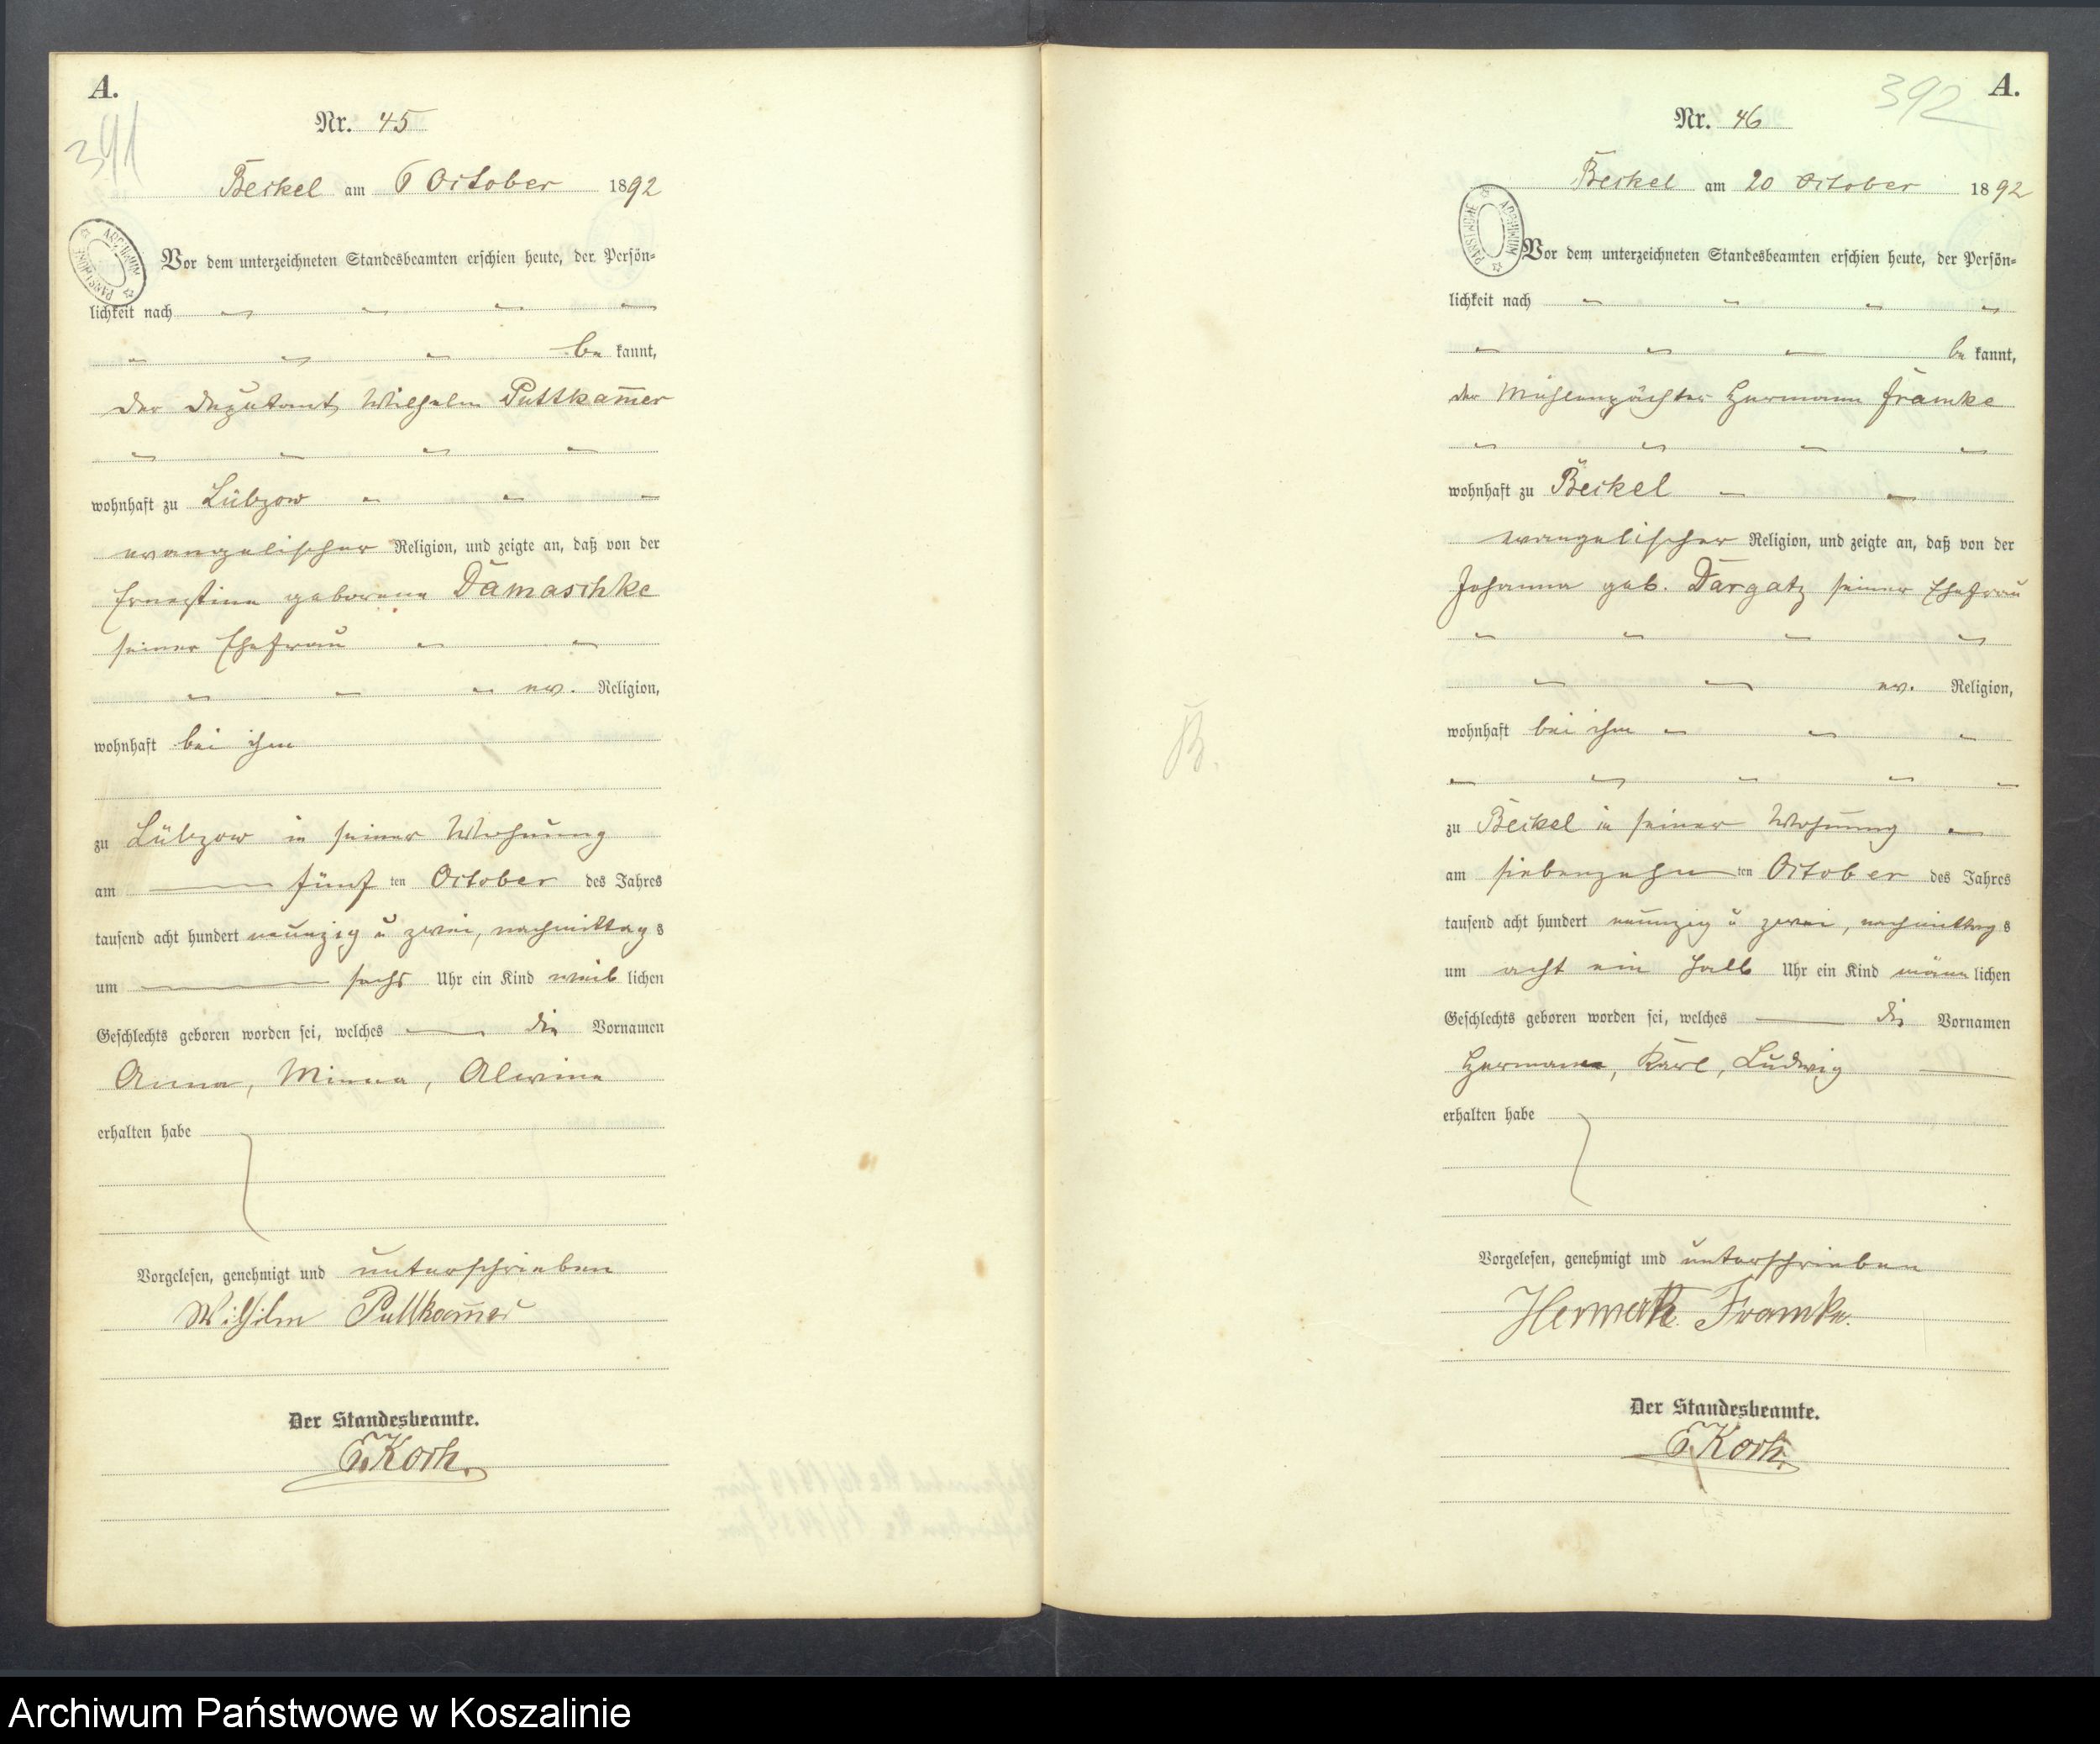 A.
391
Nr. 45
Beckel am 6 October 1892
ARCHIWUM PAŃSTWOWE
Vor dem unterzeichneten Standesbeamten erschien heute, der Persön-
lichkeit nach
be kannt,
der Deputant Wilhelm Puttkam̅er
wohnhaft zu Lübzow
evangelischer Religion, und zeigte an, daß von der
Ernestine geborene Damaschke
seiner Ehefrau
ev. Religion,
wohnhaft bei ihm
zu Lübzow in seiner Wohnung
am fünf ten October des Jahres
tausend acht hundert neunzig u zwei, nachmittag s
um sechs Uhr ein Kind weib lichen
Geschlechts geboren worden sei, welches die Vornamen
Anna, Minna, Alwine
erhalten habe
Vorgelesen, genehmigt und unterschrieben
Wilhelm Puttkam̅er
Der Standesbeamte.
Koch.
392
A.
Nr. 46
Beckel am 20 October 1892
ARCHIWUM PAŃSTWOWE
Vor dem unterzeichneten Standesbeamten erschien heute, der Persön-
lichkeit nach
be kannt,
der Mühlenpächter Hermann Framke
wohnhaft zu Beckel
evangelischer Religion, und zeigte an, daß von der
Johanna geb. Dargatz seiner Ehefrau
ev. Religion,
wohnhaft bei ihm
zu Beckel in seiner Wohnung
am siebenzehn ten October des Jahres
tausend acht hundert neunzig u zwei, nachmittag s
um acht ein halb Uhr ein Kind männ lichen
Geschlechts geboren worden sei, welches die Vornamen
Hermann, Karl, Ludwig
erhalten habe
Vorgelesen, genehmigt und unterschrieben
Framke.
Der Standesbeamte.
Koch.
Archiwum Państwowe w Koszalinie